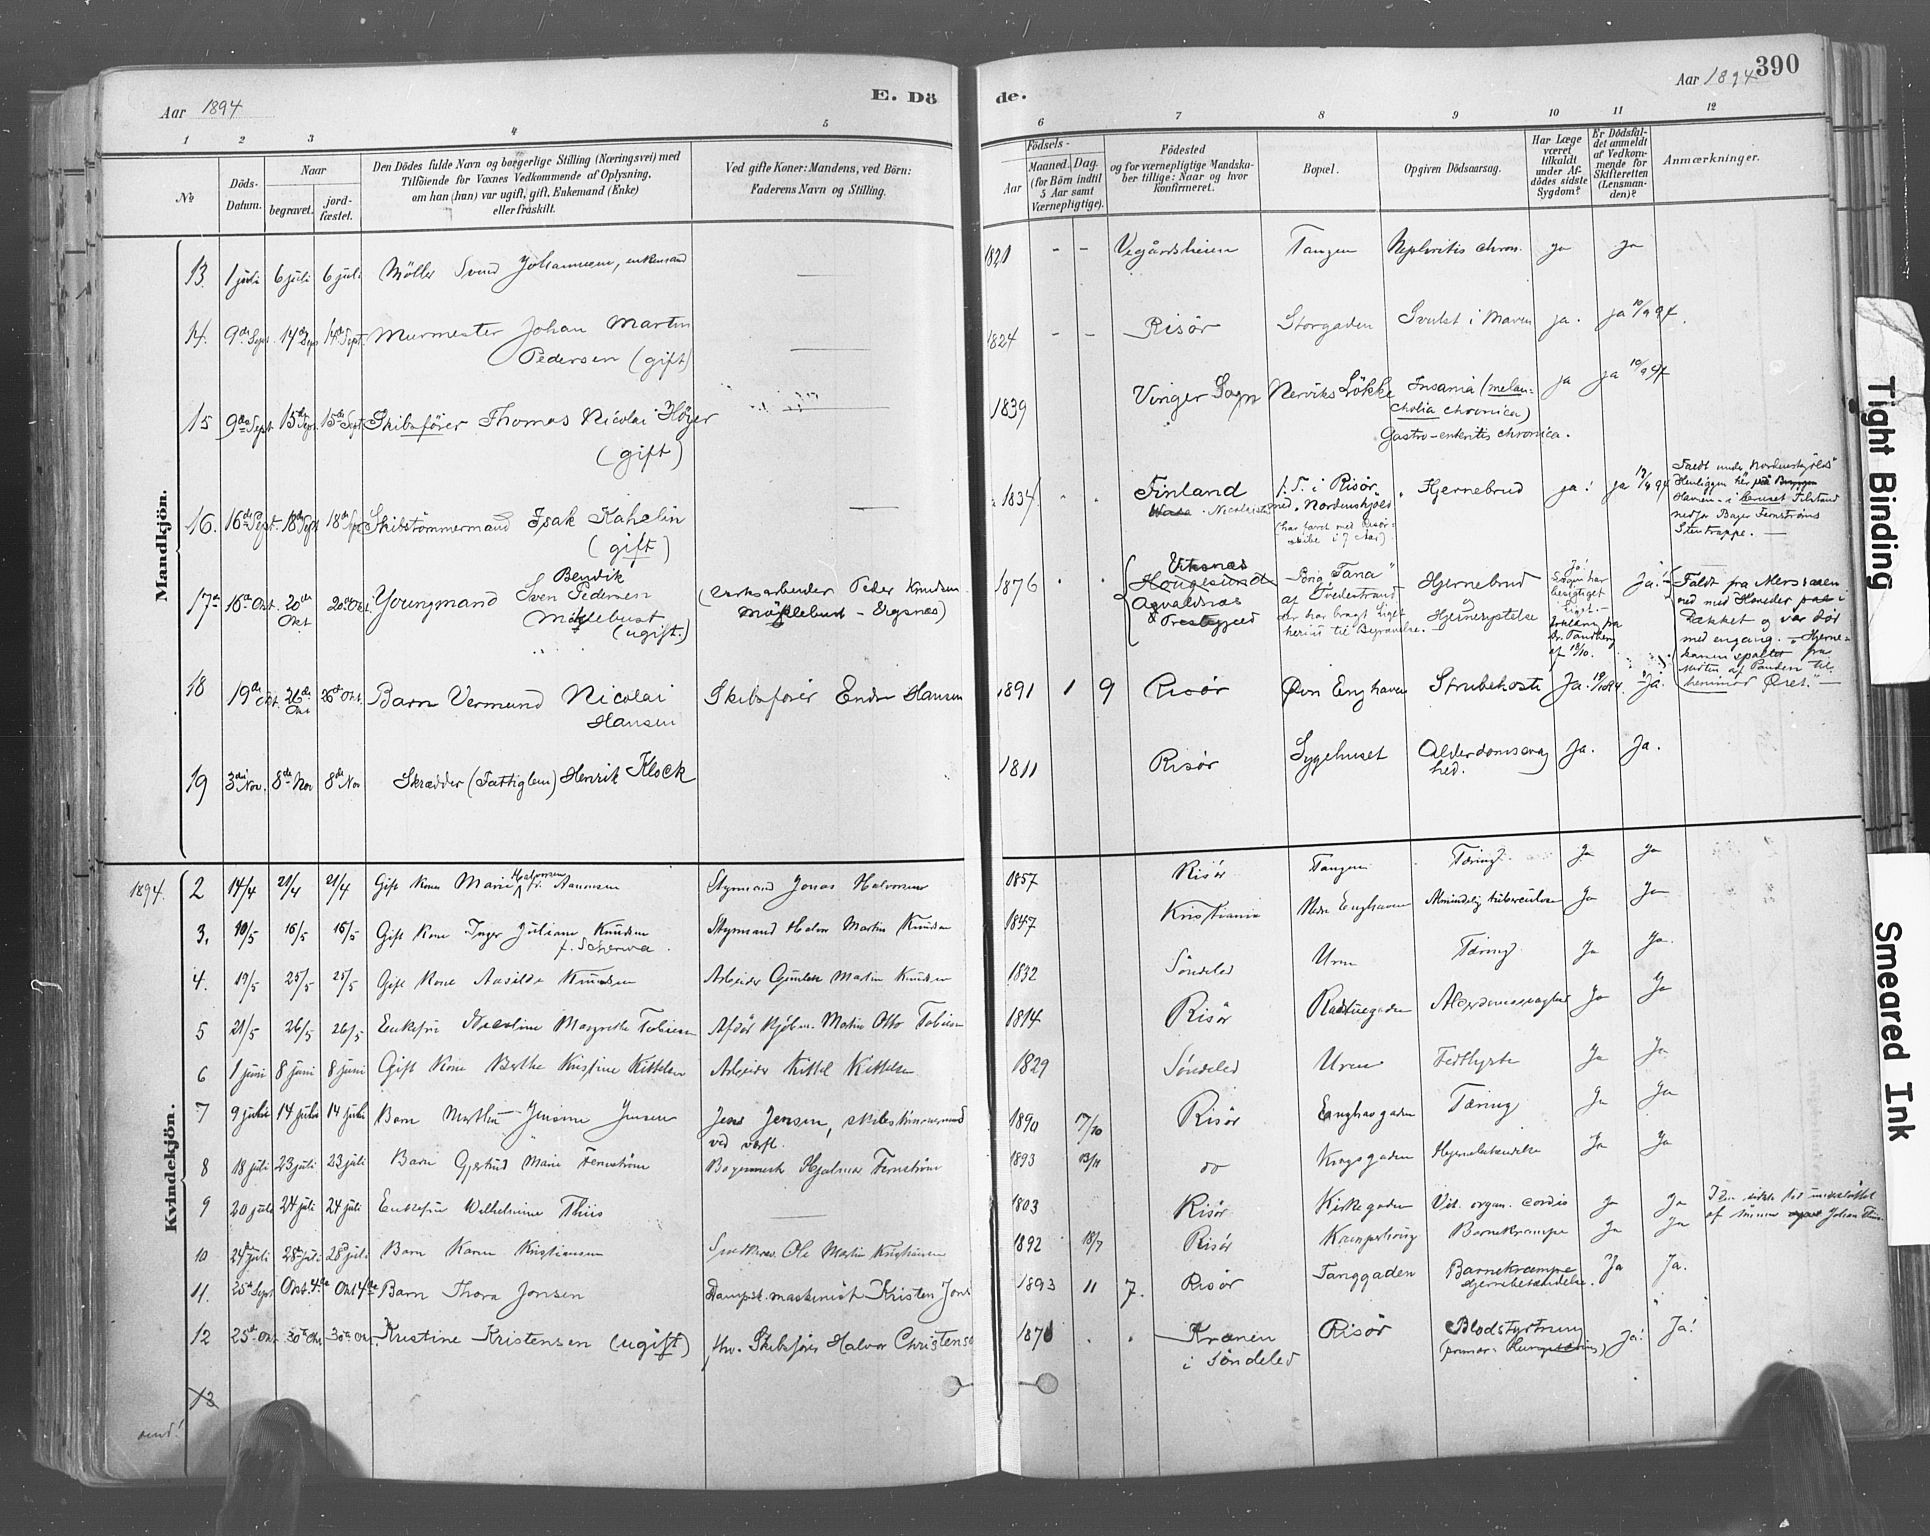 Aar 1894
E. Dö
de.
Aar 1894
390
1 2 3 4 5 6 7 8 9 10 11 12
№
Döds-Datum.
Naar
begravet.
jord-fæstet.
Den Dödes fulde Navn og borgerlige Stilling (Næringsvei) med
Tilföiende for Voxnes Vedkommende af Oplysning,
om han (hun) var ugift, gift, Enkemand (Enke)
eller fraskilt.
Ved gifte Koner: Mandens, ved Börn:
Faderens Navn og Stilling.
Födsels-
Aar
Maaned. Dag.
(for Börn indtil
5 Aar samt
Værnepligtige).
Födested
og for værnepligtige Mandska-
ber tillige: Naar og hvor
konfirmeret.
Bopæl.
Opgiven Dödsaarsag.
Har Læge
været
tilkaldt
under Af-
dödes sidste
Sygdom?
Er Dödsfal-
det anmeldt
af Vedkom-
mende for
Skifteretten
(Lensman-
den)?
Anmærkninger.
Mandkjön.
13. 1 juli 6 juli 6 juli Möller Svend Johannesen, enkemand — 1821 - - Vegårdsheien Tangen Nephritis chron. ja ja
14. 9de Sept. 14de Sept 14de Sept. Murmester Johan Martin
Pedersen (gift) — 1824 - - Risör Storgaden Svulst i Maven ja. ja 10/9 94.
15 9de Sept. 15de Sept. 15de Sept. Skibsförer Thomas Nicolai Höyer
(gift) — 1839 Vinger Sogn Nerviks Lökke Insania (melan-
cholia chronica)
Gastro-enteritis chronica. ja ja 10/9 94
16. 16de Sept. 18de Sept 18de Sept Skibstömmermand Isak Kahelin
(gift) — 1834 Finland
Wasa Nicolaistad
p. T. i Risör
med "Nordenskjöld"
(har faret med Risör-
skibe i 7 Aar)
Hjernebrud ja!
Faldt under "Nordenskjölds"
Henliggen her
Havnen - i beruset Tilstand
ned for Bager Fernströms
Stentrappe. —
17de 16de Okt. 20de Okt 20de Okt. Youngmand Bendik
Sven Pedersen
(ugift.)
(Værksarbeider Peder Knudsen
1876
Viksnæs
Hougesund
Agvaldsnæs
Prestegjeld
"Tana"
af Tvedestrand
der har bragt Liget
herind til Begravelse.
Hjernebrud
og
Hjernerystelse
Ja!
Ja!
Faldt fra Mersraaen
ned med Hovedet i
Dækket og var död
med engang. - Hjerne-
Panden til
Öret." —
18 19de Okt. 26de Okt 26de Okt. Barn Vermund Nicolai
Hansen Skibsförer Endre Hansen 1891 1 9 Risör Övre Enghaven Strubehoste Ja. Ja.
19 3die Nov. 8de Nov 8de Nov Skrædder (Fattiglem) Henrik Klock 1811 Risör Sygehuset Alderdomssvag
hed. Ja. Ja.
Kvindekjön.
1894. 2 14/4 21/4 21/4 Gift Kone Marie Halvorsen f. Aanonsen Styrmand Jonas Halvorsen 1857 Risör Tangen Tæring Ja Ja
3. 10/5 16/5 16/5 Gift Kone Inger Juliane Knudsen
Styrmand Halvor Martin Knudsen 1847 Kristiania Nedre Enghaven Almindelig tuberculose Ja Ja
4. 19/5 25/5 25/5 Gift Kone Aasilde Knudsen Arbeider Martin Knudsen 1832 Söndeled Uren Tæring Ja Ja.
5 21/5 26/5 26/5 Enkefru Nicoline Margrethe Tobiesen Afdör Kjöbm. Martin Otto Tobiesen 1814 Risör Raadhusgaden Alderdomssvaghed Ja Ja
6 1 juni 8 juni 8 juni Gift Kone Berthe Kristine Kittelsen Arbeider Kittel Kittelsen 1829 Söndeled Uren Ja Ja
7 9 juli 14 juli 14 juli Barn Marthe Jensine Jensen Jens Jensen, skibstömmermand
ved værft. 1890 7/10 Risör Enghavgaden Tæring Ja Ja
8 18 juli 23 juli 23 juli Barn Gjertrud Marie Fernström Bagermester Hjalmar Fernström 1893 13/11 do Kongsgaden Hjernebetændelse Ja Ja
9 20 juli 24 juli 24 juli Enkefru Wilhelmine Thiis — 1803 Risör Kirkegaden Vit. organ. cordis Ja Ja
I den sidste tid understöttet
af sönnen Johan Thiis.
10 24 juli 28 juli 28 juli Barn Karen Kristiansen Ole Martin Kristiansen 1892 18/7 Risör Kamperhoug Barnekrampe Ja Ja
11. 25de Sept Okt. 4de Okt 4de Barn Thora Jonsen Dampsk. maskinist Kristen Jons 1893 11 7. Risör Tanggaden Barnekrampe
Hjernebetændelse. Ja Ja.
12 25de Okt 30te Okt. 30te Okt. Kristine Kristensen (ugift) fhv. Skibsförer Halvor Christens 1871 Kranen
i Söndeled Risör Blodstyrtning
Ja! Ja!
13
Tight Binding
Smeared Ink